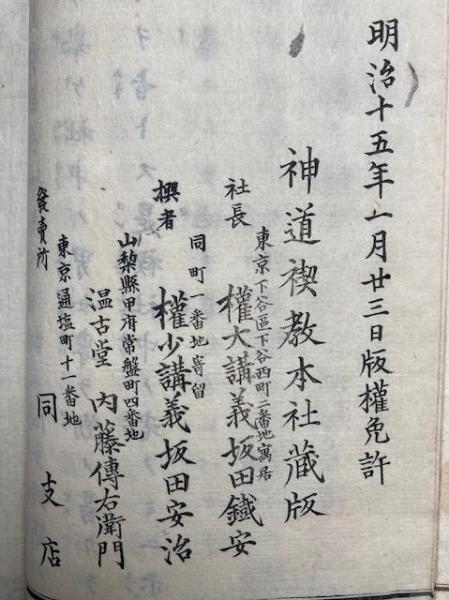 明治十五年一月廿三日版權免許
神道禊教本社藏版
東京下谷區下谷西町二番地寓居
社長 權大講義坂田鐵安
同町一番地寄留
撰者 權少講義坂田安治
山梨縣甲府常盤町四番地
温古堂 内藤傳右衛門
東京通塩町十一番地
發賣所 同支店